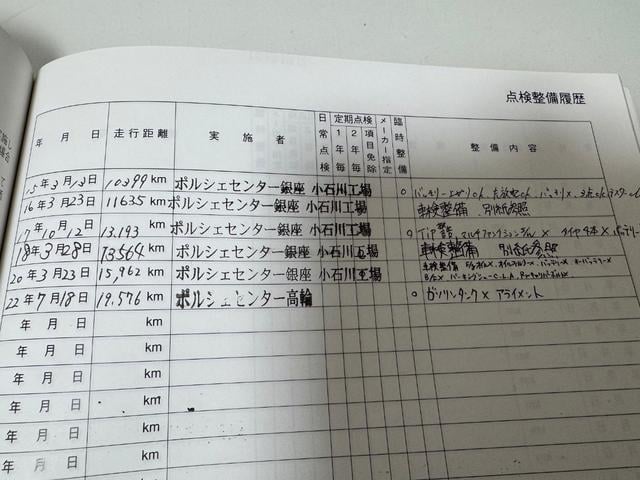 点検整備履歴
年 月 日 走行距離 実施者 日常点検 定期点検 1年毎 2年毎 項目免除 メーカー指定 臨時整備 整備内容
15年3月13日 10399 km ポルシェセンター銀座 小石川工場
16年3月23日 11635 km ポルシェセンター銀座 小石川工場 車検整備 別紙参照
17年10月12日 13,193 km ポルシェセンター銀座 小石川工場 タイヤ4本×
18年3月28日 13,564 km ポルシェセンター銀座 小石川工場 車検整備 別紙参照
20年3月23日 15,962 km ポルシェセンター銀座 小石川工場 車検整備
22年7月18日 19,576 km ポルシェセンター高輪 ○ ガソリンタンク× アライメント
年 月 日 km
年 月 日 km
年 月 日 km
年 月 日 km
年 月 日 km
年 月 日 km